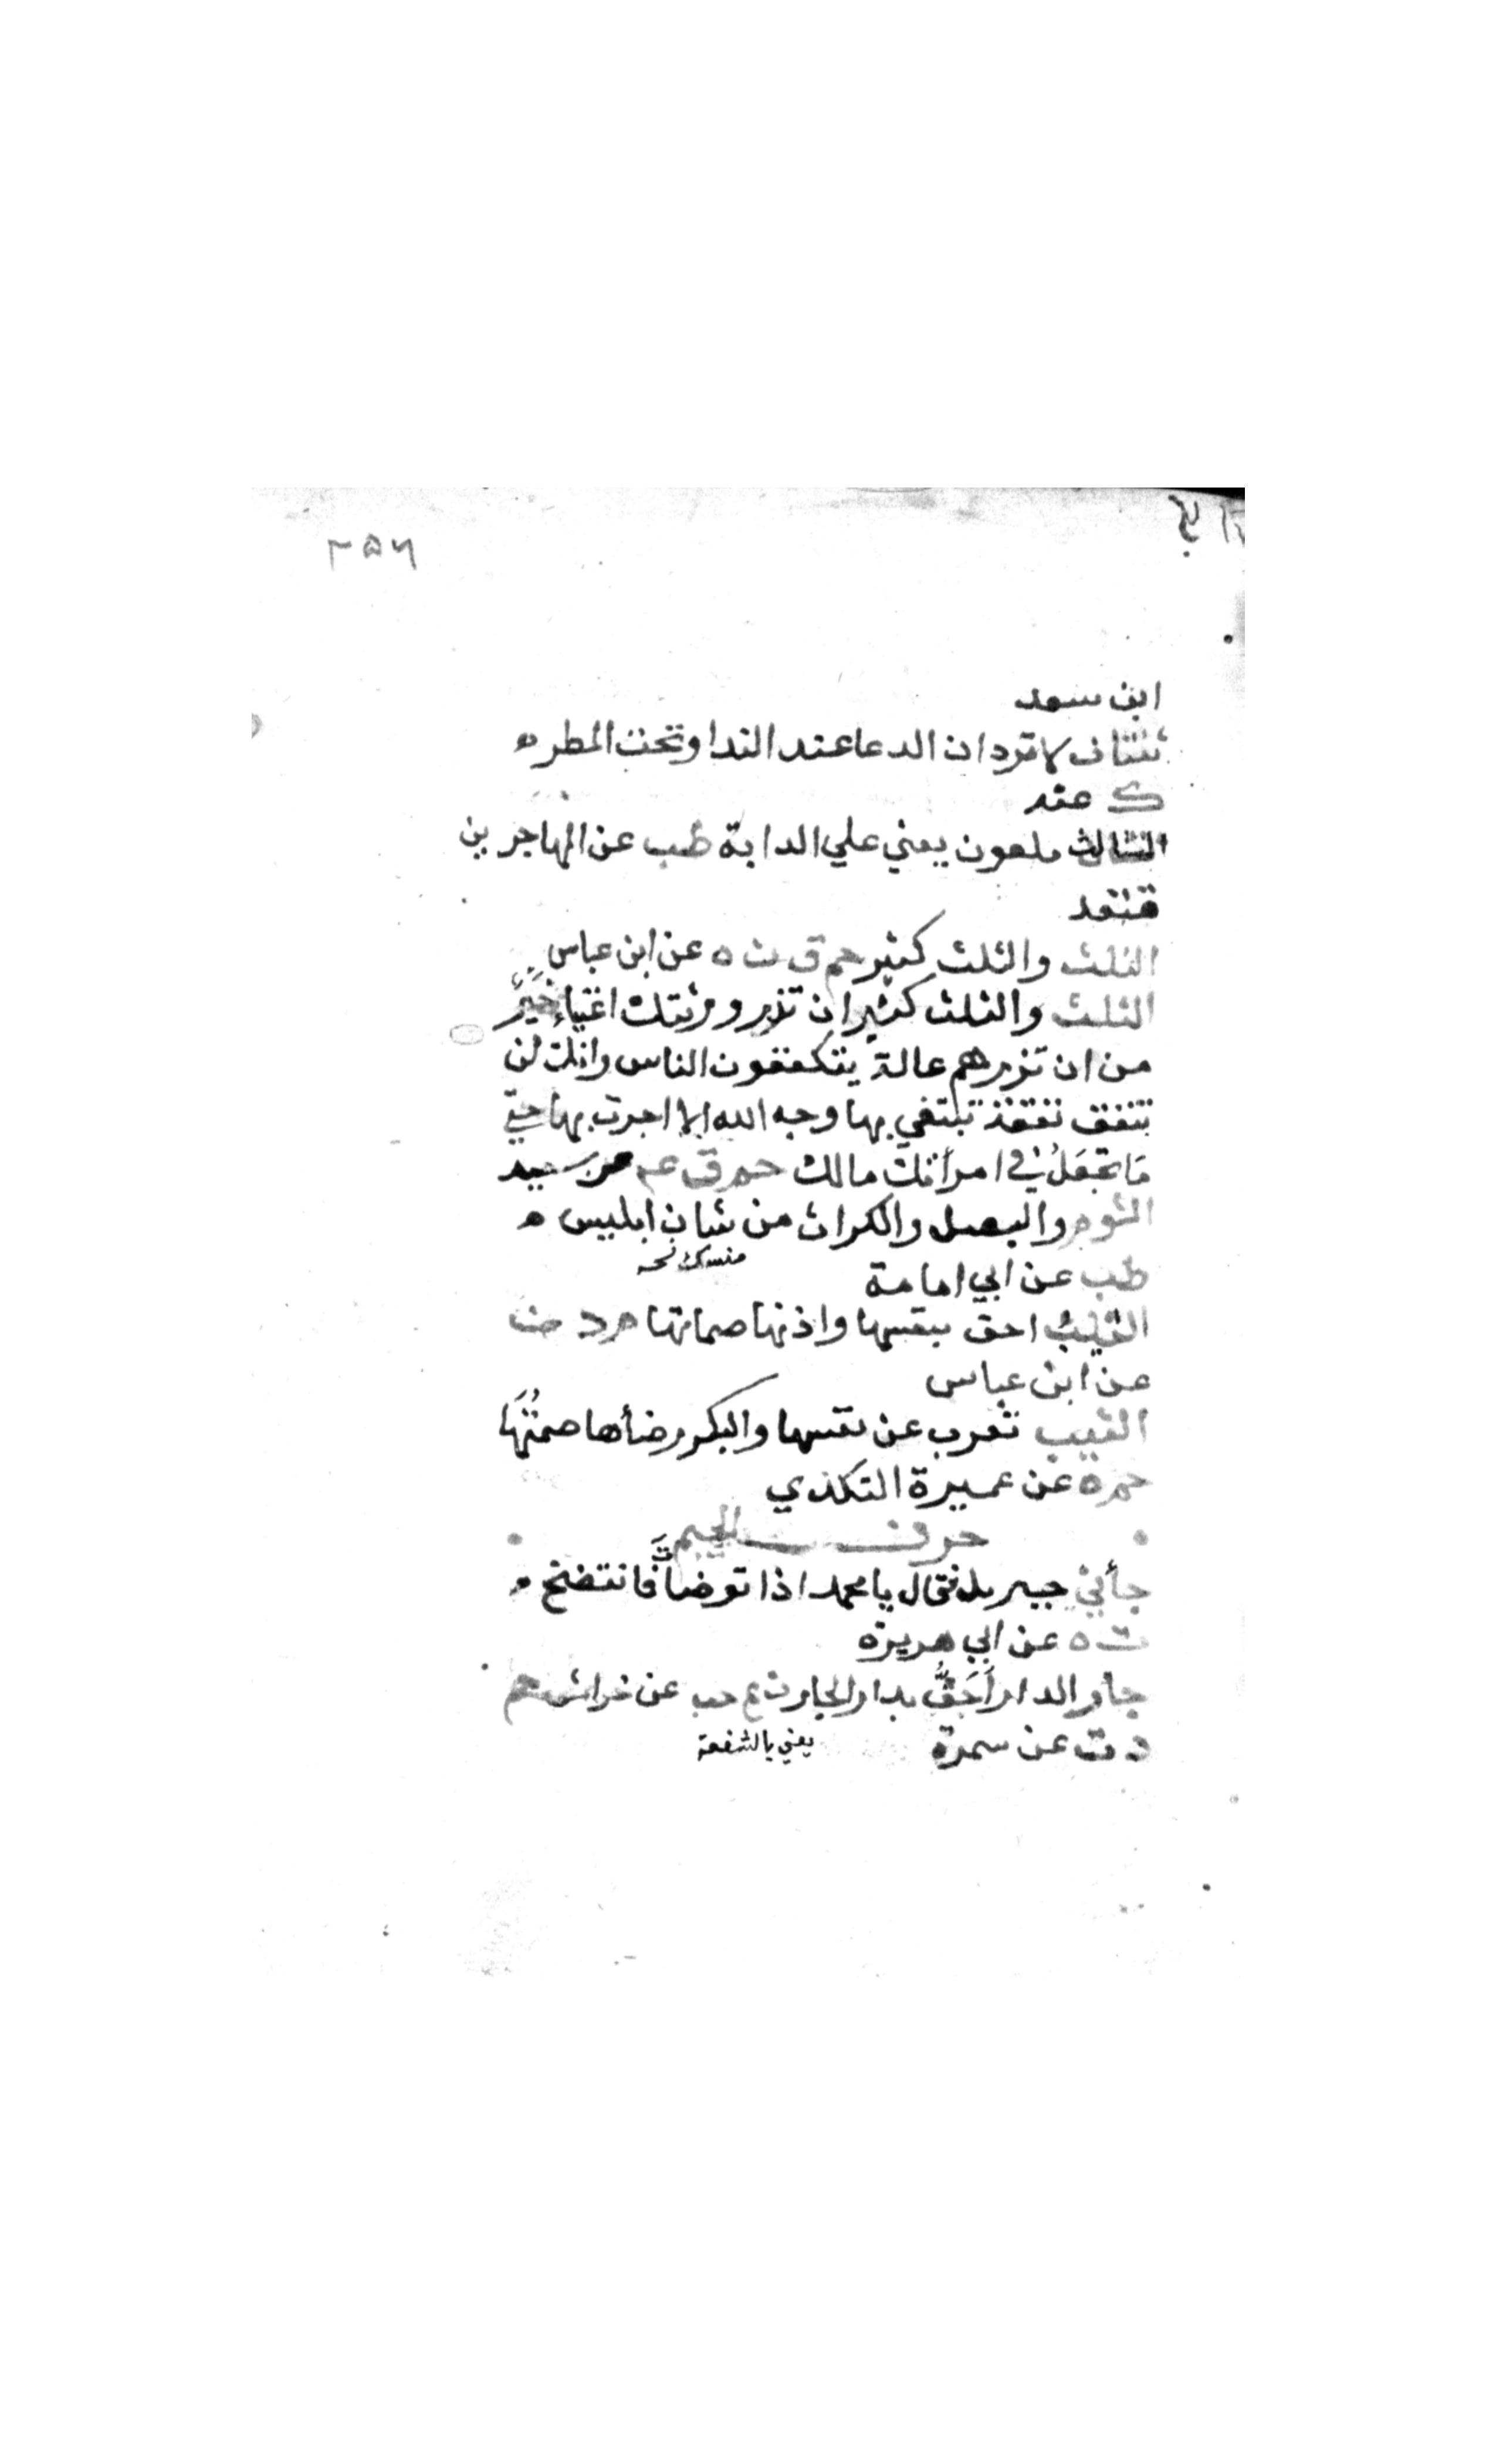 ٢٥٦
ابن سعد
ثنتان لا تردان الدعا عند الندا وتحت المطر ه
ك عنه
الثالث ملعون يعني علي الدابة طب عن المهاجر بن
قنفد
الثلث والثلث كثير حم ق ن ه عن ابن عباس
الثلث والثلث كثير ان تذر ورثتك اغنياء خَيْرٌ
من ان تذرهم عالة يتكففون الناس وانك لن
تنفق نفقة تبتغي بها وجه الله الا اجرت بها حتي
مَا تجعَلُ في امرأتك مالك حم ق عه عن سعيد
الثوم والبصل والكراث من شان ابليس ه
منسك نحه
طب عن ابي امامة
الثيب احق بنفسها واذنها صماتها م د ن
عن ابن عباس
الثيب تعرب عن نفسها والبكر رضأها صمتُهَا
حم ه عن عميرة التكندي
حرف الجيم
جأني جبريل فقال يا محمد اذا توضأتَ فانتضخ ه
ت ه عن ابي هريرة
جار الدار أَحَقُّ بدار الجار ن ع حب عن خراش حم
د ت عن سمرة
يعني بالشفعة